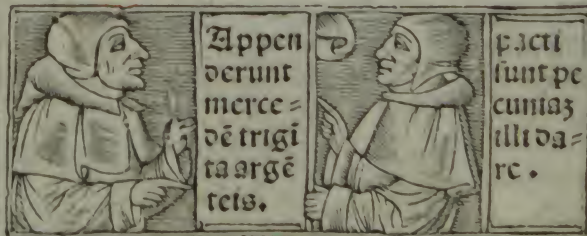 Appen
derunt
merce=
dē trigi
ta argē
teis.
pacti
sunt pe
cuniaʒ
illi da=
re.